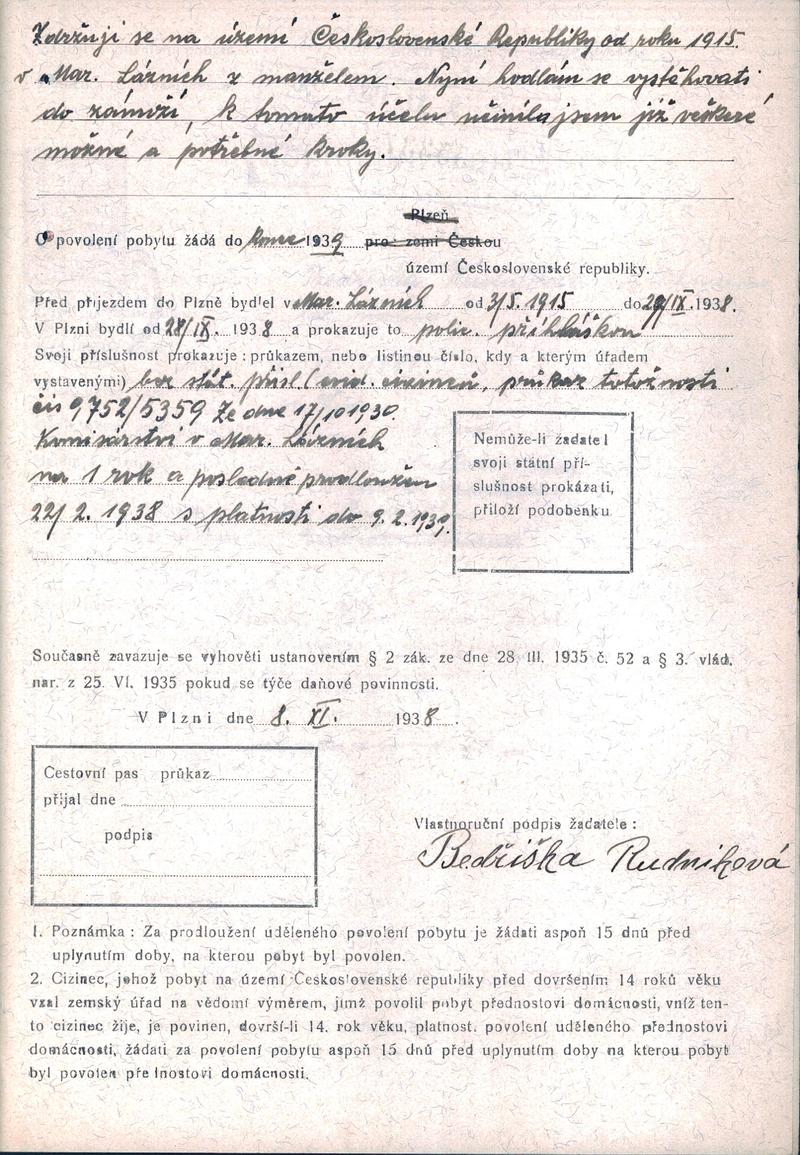 Zdržuji se na území Československé Republiky od roku 1915.
v Mar. Lázních z manželem. Nyní hodlám se vystěhovati
do zámoží, k tomuto účelu učinila jsem již veškeré
možné a potřebné kroky.
Plzeň
O povolení pobytu žádá do konce 1939 pro: zemi Českou
území Československé republiky.
Před příjezdem do Plzně bydlel v Mar. Lázních od 3/5. 1915 do 29/IX. 1938.
V Plzni bydlí od 28/IX. 1938 a prokazuje to polic. přihláškou
Svoji příslušnost prokazuje: průkazem, nebo listinou číslo, kdy a kterým úřadem
vystavenými) bez stát. přísl. (evid. cizinců, průkaz totožnosti
čís 9752/5359 Ze dne 17/10 1930.
Komisařství v Mar. Lázních
na 1 rok a posledně prodloužen
22/2. 1938 s platností do 9. 2. 1939.
Nemůže-li žadatel
svoji státní pří-
slušnost prokázati,
přiloží podobenku.
Současně zavazuje se vyhověti ustanovením § 2 zák. ze dne 28. III. 1935 č. 52 a § 3. vlád.
nar. z 25. VI. 1935 pokud se týče daňové povinnosti.
V Plzni dne 8. XI. 1938.
Cestovní pas průkaz
přijal dne
podpis
Vlastnoruční podpis žadatele:
Bedřiška Rudniková
1. Poznámka: Za prodloužení uděleného povolení pobytu je žádati aspoň 15 dnů před
uplynutím doby, na kterou pobyt byl povolen.
2. Cizinec, jehož pobyt na území Československé republiky před dovršením 14 roků věku
vzal zemský úřad na vědomí výměrem, jímž povolil pobyt přednostovi domácnosti, vníž ten-
to cizinec žije, je povinen, dovrší-li 14. rok věku, platnost. povolení uděleného přednostovi
domácnosti, žádati za povolení pobytu aspoň 15 dnů před uplynutím doby na kterou pobyt
byl povolen přelnostovi domácnosti.